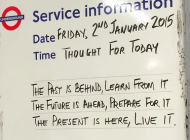 Service information
Date FRIDAY, 2ND JANUARY 2015
Time THOUGHT FOR TODAY
THE PAST IS BEHIND, LEARN FROM IT.
THE FUTURE IS AHEAD, PREPARE FOR IT.
THE PRESENT IS HERE, LIVE IT.